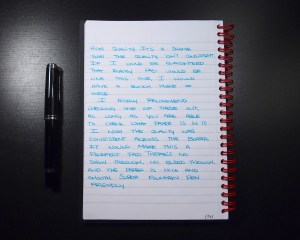 HIGH QUALITY. IT'S A SHAME
THAT THE QUALITY ISN'T CONSISTENT.
IF I COULD BE GUARANTEED
THAT EVERY PAD WOULD BE
LIKE THIS ONE, I WOULD
HAVE A BUNCH MORE OF
THESE.
I HIGHLY RECOMMEND
CHECKING ONE OF THESE OUT,
AS LONG AS YOU ARE ABLE
TO CHECK WHAT PAPER IS IN IT.
I WISH THE QUALITY WAS
CONSISTENT ACROSS THE BOARD.
IT WOULD MAKE THIS A
PERFECT PAD. THERE'S NO
SHOW THROUGH, NO BLEED THROUGH,
AND THE PAPER IS NICE AND
SMOOTH. SUPER FOUNTAIN PEN
FRIENDLY.